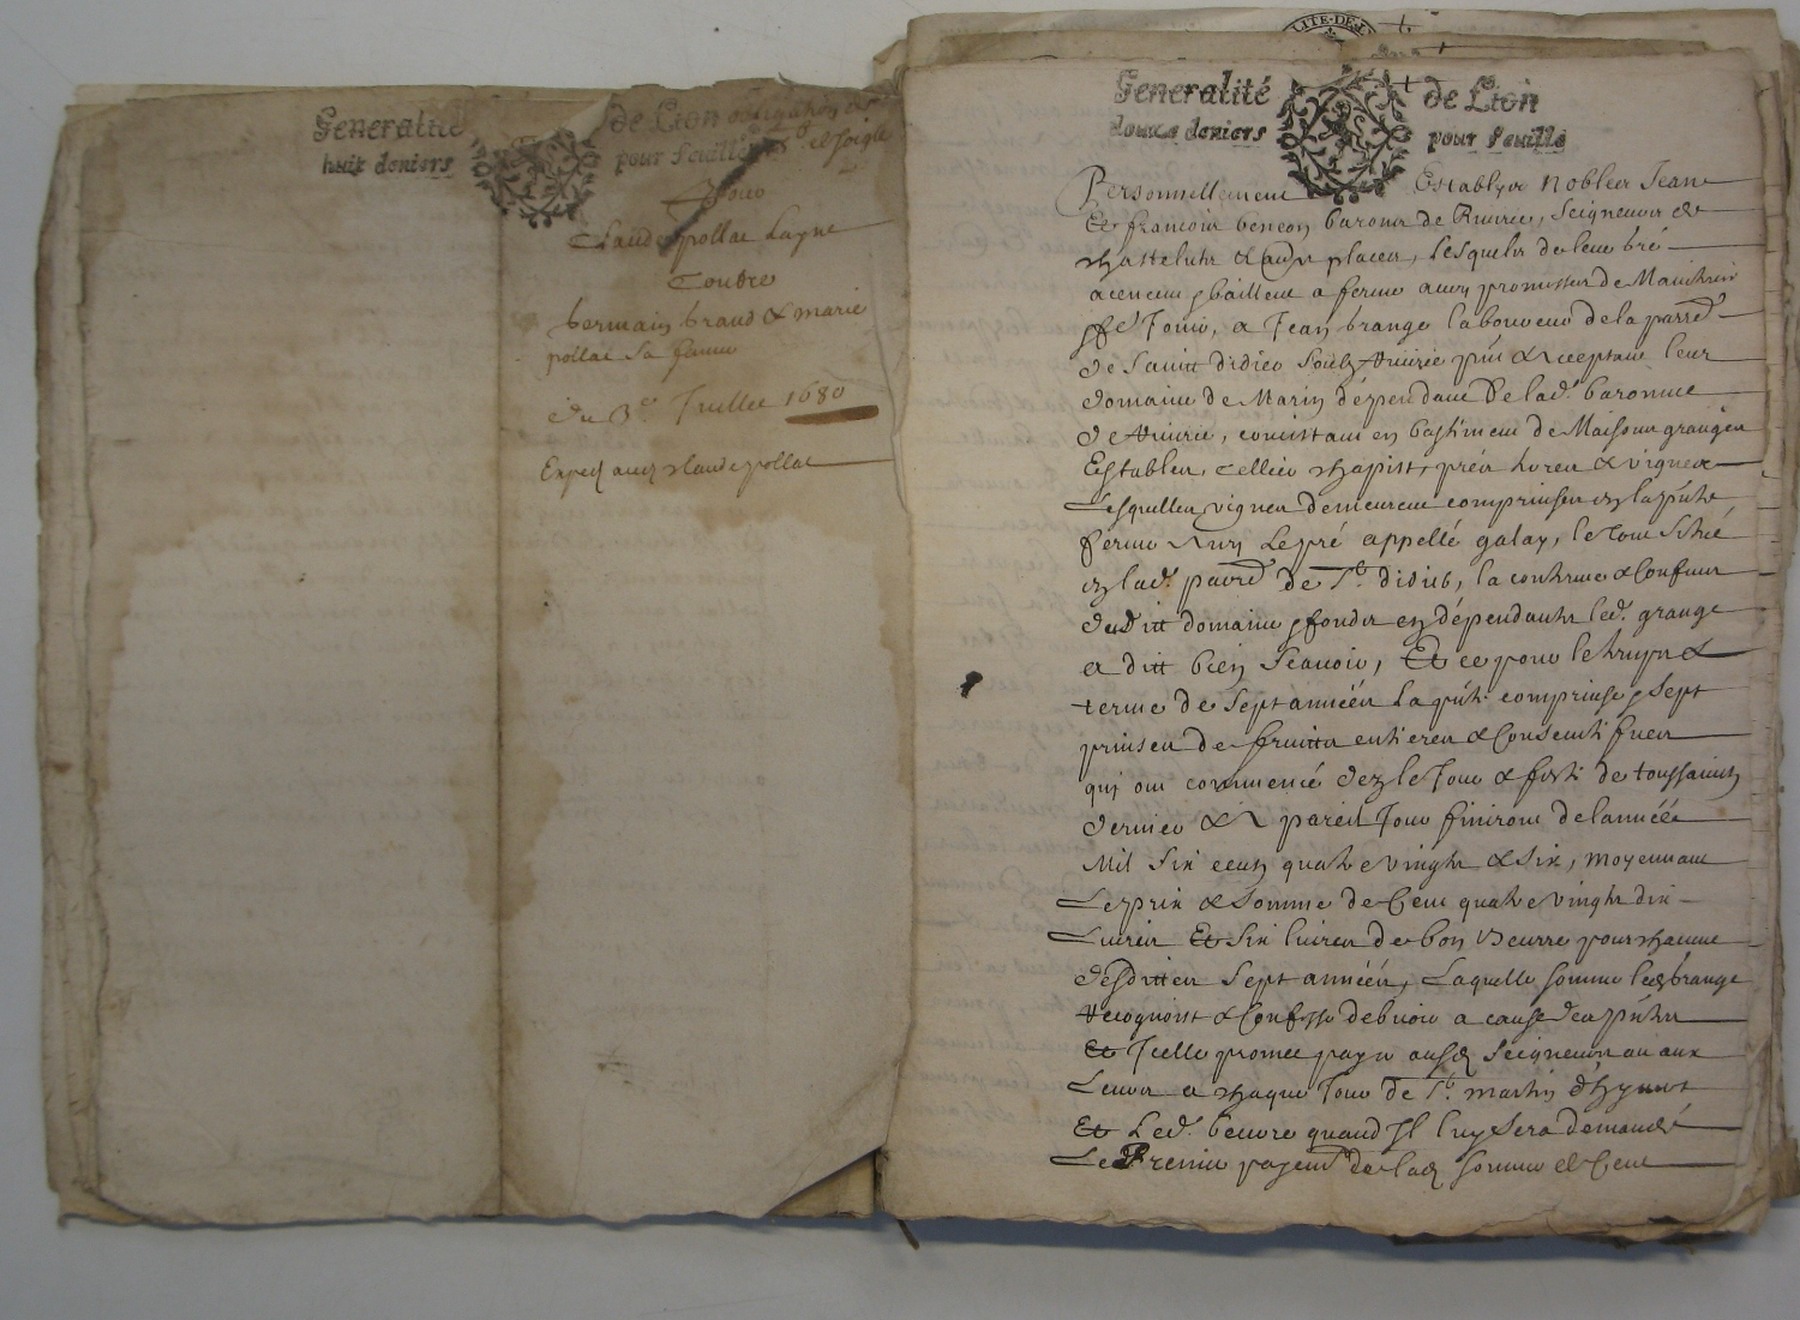 Generalité de Lion obligation de
huit deniers pour feuille et soigle
Pour
Claude pollae Layne
Contre
bermain braud & marie
pollae sa femme
du 3e Juillet 1680
Exped aud Claude pollae
LITE-DE-L
Generalité de Lion
douze deniers pour feuille
Personnellement Establys Nobles Jean
Et francois bencon barons de Riverie, Seigneurs de
Chasteluts & aues places, Lesquels de leur bré
acensent & baillent a ferme avec promesse de Maintenir
& Jouir, a Jean brange laboureur de la parre
de Sainct didier soubz Riverie pnt & acceptant leur
domaine de Marin dépendant de lad. baronnie
de Riverie, consistant en bastiment de Maisons granges
Estables, cellier chapitt, prés terres & vignes
Lesquelles vignes demeurent comprinses en la pnte
ferme avec Le pré appellé galay, le tout Scitué
en lad. parre de St. didier, la contenue & Confins
duditt domaine & fonds en dépendants led. brange
a ditt bien Scavoir, Et ce pour le temps &
terme de Sept années la pnte comprinse & Sept
prinses de fruitts entieres & Consecutifves
qui ont commencé dez le Jour & feste de toussaincts
dernier & a pareil Jour finiront de l'année
Mil Six cents quatre vingts & Six, moyennant
Le prix & Somme de Cent quatre vingts dix
Livres Et Six livres de bon Beurre pour chacune
desdittes Sept années, Laquelle somme led brange
recognoist & Confesse debvoir a cause des pntes
Et Icelle promet payer ausd Seigneurs ou aux
Leurs a chaque Jour de St. martin d'hyvert
Et Led. beurre quand Il luy Sera demandé
Le Premier payemt de lad somme de Cent